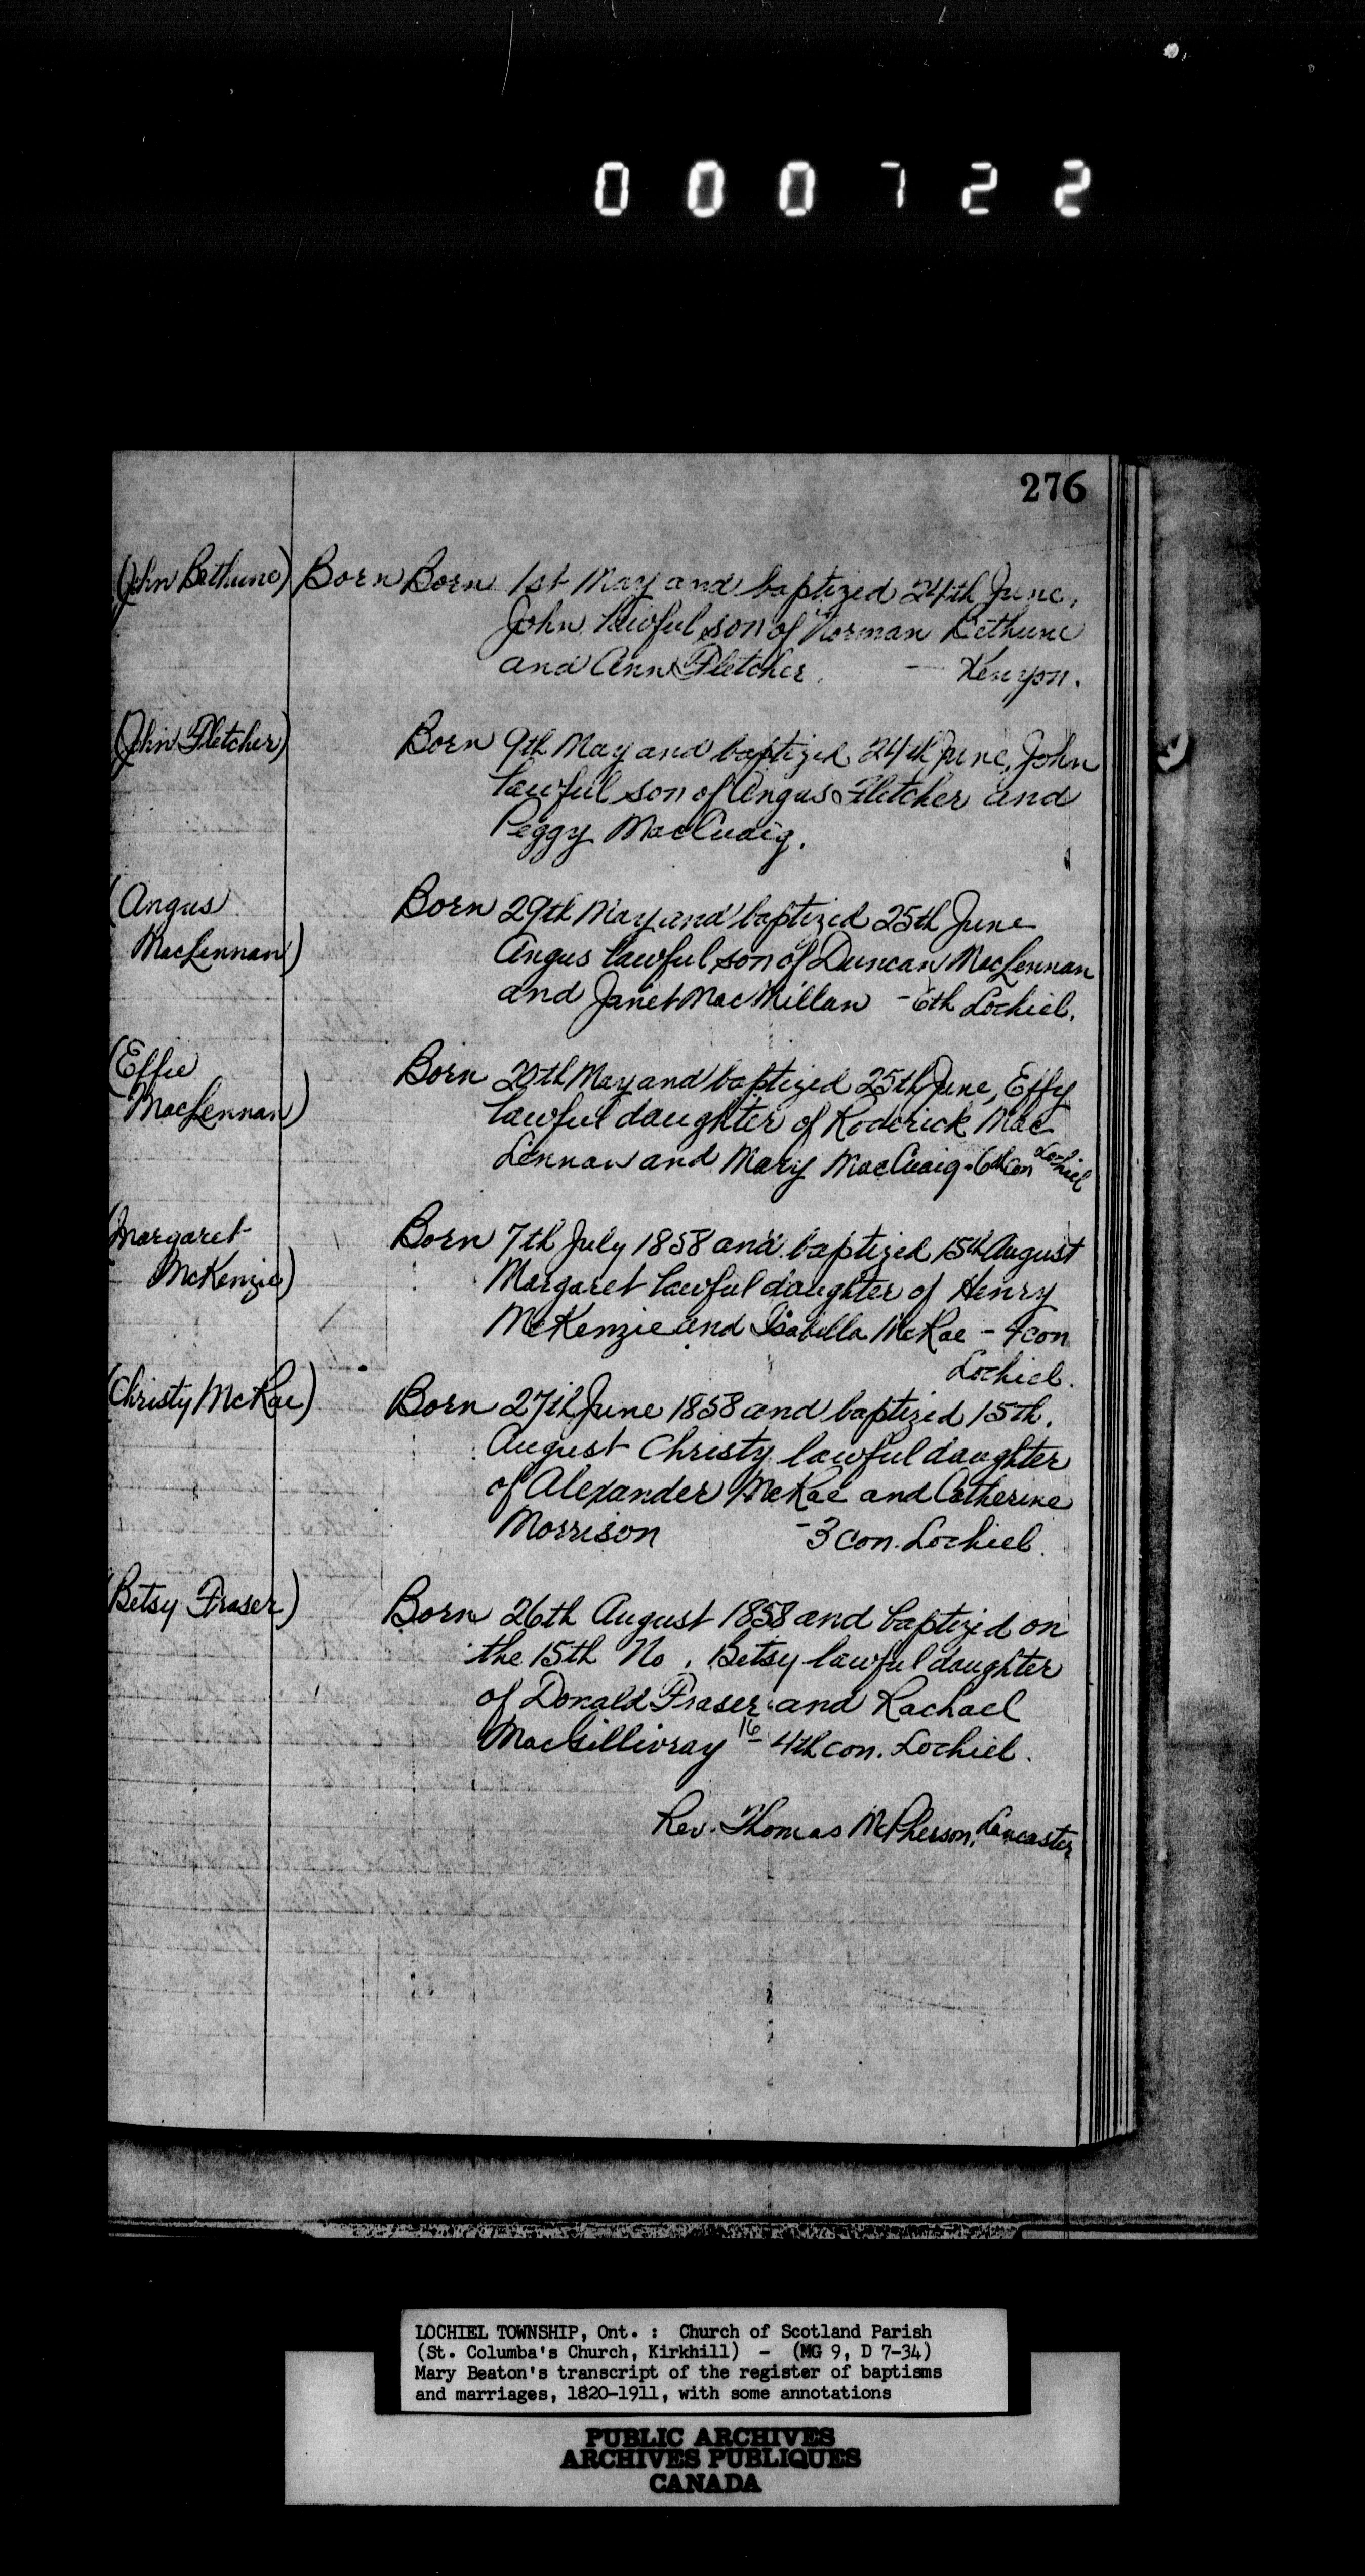 000722
276
(John Bethune) Born Born 1st May and baptized 24th June,
John lawful son of Norman Bethune
and Ann Fletcher. — Kenyon.
(John Fletcher) Born 9th May and baptized 24th June, John
lawful son of Angus Fletcher and
Peggy MacCuaig.
(Angus Born 29th May and baptized 25th June
MacLennan) Angus lawful son of Duncan MacLennan
and Janet MacMillan - 6th Lochiel.
(Effie Born 20th May and baptized 25th June, Effy
MacLennan) lawful daughter of Roderick Mac
Lennan and Mary MacCuaig - 6th Con Lochiel
(Margaret Born 7th July 1858 and baptized 15th August
McKenzie) Margaret lawful daughter of Henry
McKenzie and Isabella McRae - 4 con
Lochiel.
(Christy McRae) Born 27th June 1858 and baptized 15th.
August Christy lawful daughter
of Alexander McRae and Catherine
Morrison - 3 con. Lochiel.
(Betsy Fraser) Born 26th August 1858 and baptized on
the 15th No. Betsy lawful daughter
of Donald Fraser and Rachael
MacGillivray 16 - 4th con. Lochiel.
Rev. Thomas McPherson, Lancaster
LOCHIEL TOWNSHIP, Ont. : Church of Scotland Parish
(St. Columba's Church, Kirkhill) - (MG 9, D 7-34)
Mary Beaton's transcript of the register of baptisms
and marriages, 1820-1911, with some annotations
PUBLIC ARCHIVES
ARCHIVES PUBLIQUES
CANADA